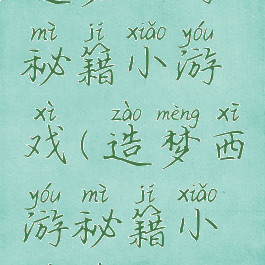 mì jí xiǎo yóu
秘籍小游
xì zào mèng xī
戏(造梦西
yóu mì jí xiǎo
游秘籍小